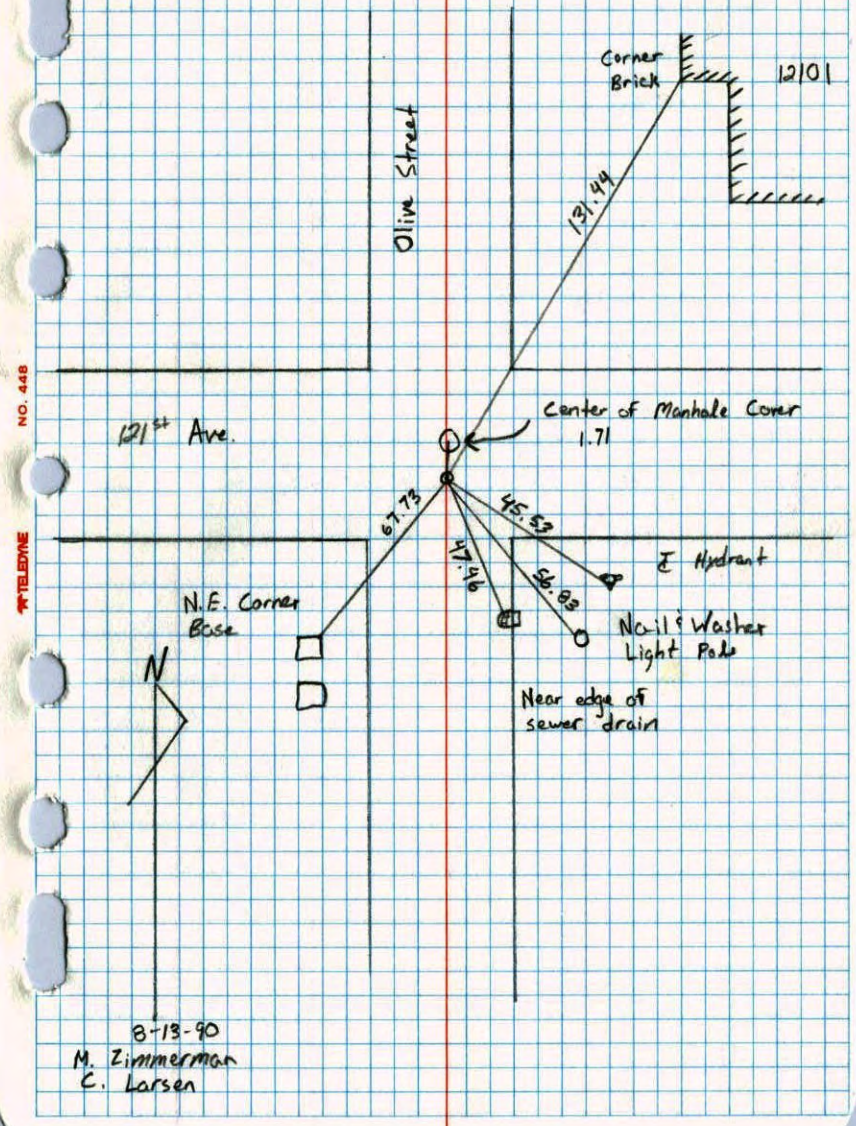 Corner
Brick
12101
Olive Street
131.44
NO. 448
121st Ave.
Center of Manhole Cover
1.71
67.73
45.53
47.46
56.83
TELEDYNE
℄ Hydrant
N.E. Corner
Base
Nail & Washer
Light Pole
N
Near edge of
sewer drain
8-13-90
M. Zimmerman
C. Larsen